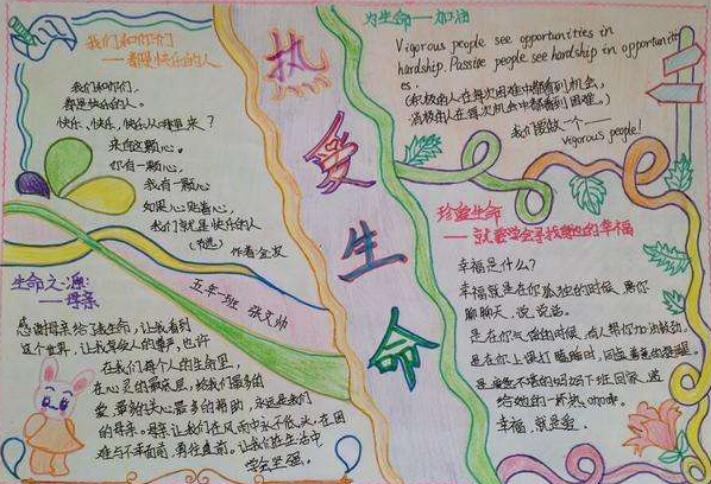 我们和你们
——都是快乐的人
我们和你们,
都是快乐的人。
快乐、快乐,快乐从哪里来?
来自这颗心。
你有一颗心,
我有一颗心
如果心贴着心,
我们就是快乐的人
(节选)
作者:金波
生命之源:
——母亲
感谢母亲给了我生命,让我看到
这个世界,让我享受人的尊严,也许
在我们每个人的生命里,
在心灵的最底层,给我们最多的
爱、最多的关心最多的帮助,永远是我们
的母亲。母亲让我们在风雨中永不低头,在困
难与不幸面前,勇往直前。让我们在生活中
学会坚强。
热爱生命
五年一班 张文帅
为生命——加油
Vigorous people see opportunities in
hardship. Passive people see hardship in opportuniti
es.
(积极的人在每次困难中都看到机会,
消极的人在每次机会中都看到困难。)
我们要做一个——
vigorous people!
珍重生命
——就要学会寻找身边的幸福
幸福是什么?
幸福就是在你孤独的时候,陪你
聊聊天、说说话。
是在你气馁的时候,有人帮你加油鼓劲。
是在你上课打瞌睡时,同桌善意的提醒。
是疲惫不堪的妈妈下班回家,递
给她的一杯热
幸福,就是爱。